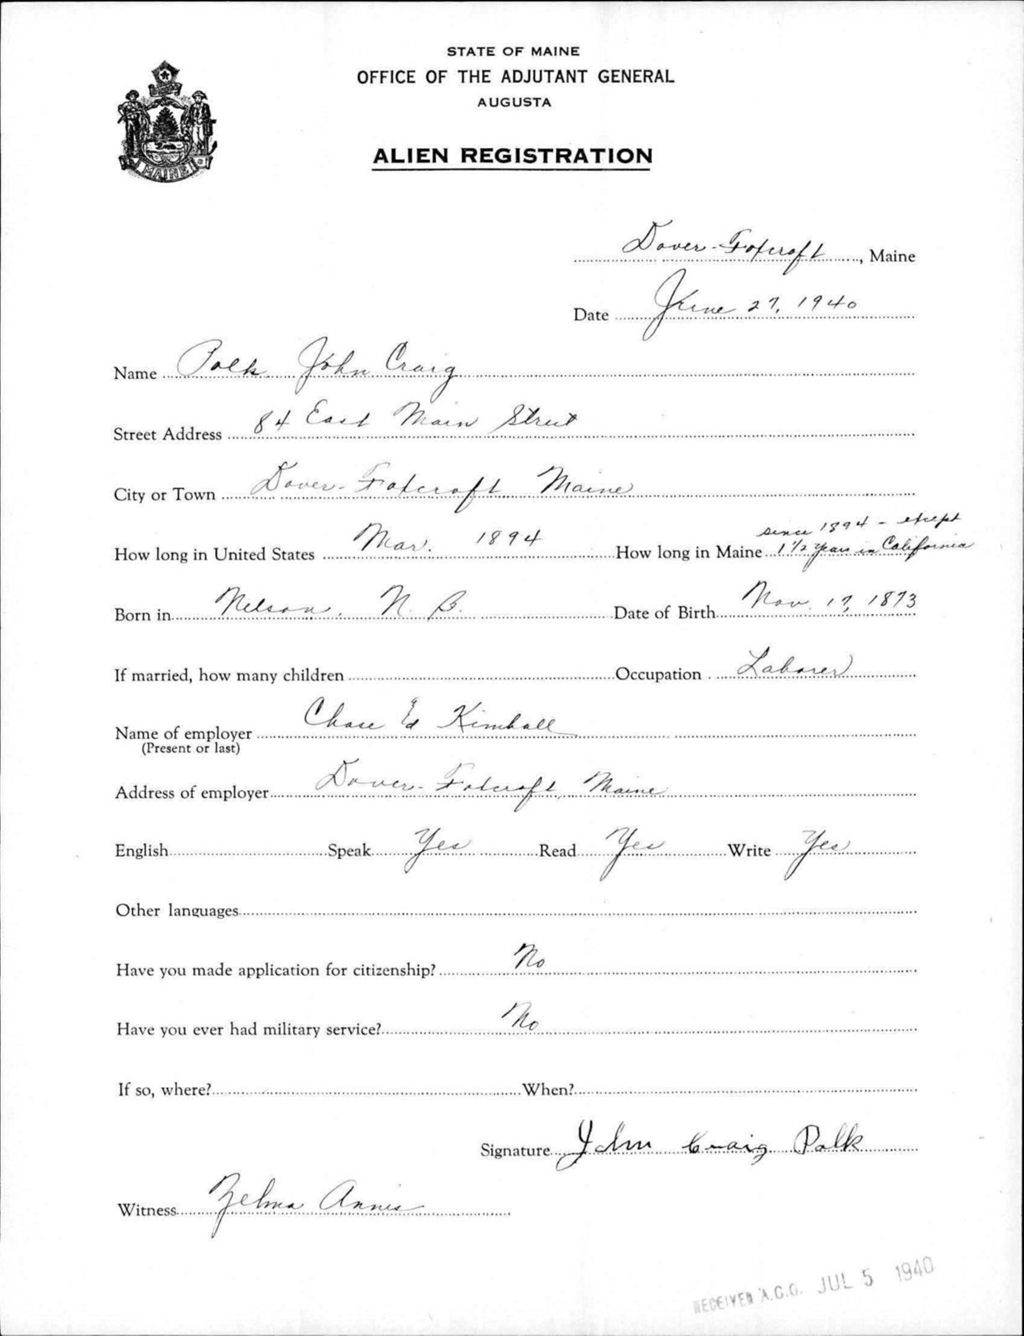 STATE OF MAINE
OFFICE OF THE ADJUTANT GENERAL
AUGUSTA
ALIEN REGISTRATION
MAINE
Dover-Foxcroft, Maine
Date June 27, 1940
Name Polk John Craig
Street Address 84 East Main Street
City or Town Dover-Foxcroft Maine
since 1894 - except
How long in United States Mar. 1894 How long in Maine 1 1/2 years in California
Born in Nelson, N. B. Date of Birth Nov. 17, 1873
If married, how many children Occupation Laborer
Name of employer Chase Ed Kimball
(Present or last)
Address of employer Dover-Foxcroft, Maine
English Speak Yes Read Yes Write Yes
Other languages
Have you made application for citizenship? No
Have you ever had military service? No
If so, where? When?
Signature John Craig Polk
Witness Zelma Annis
RECEIVED A.G.O. JUL 5 1940